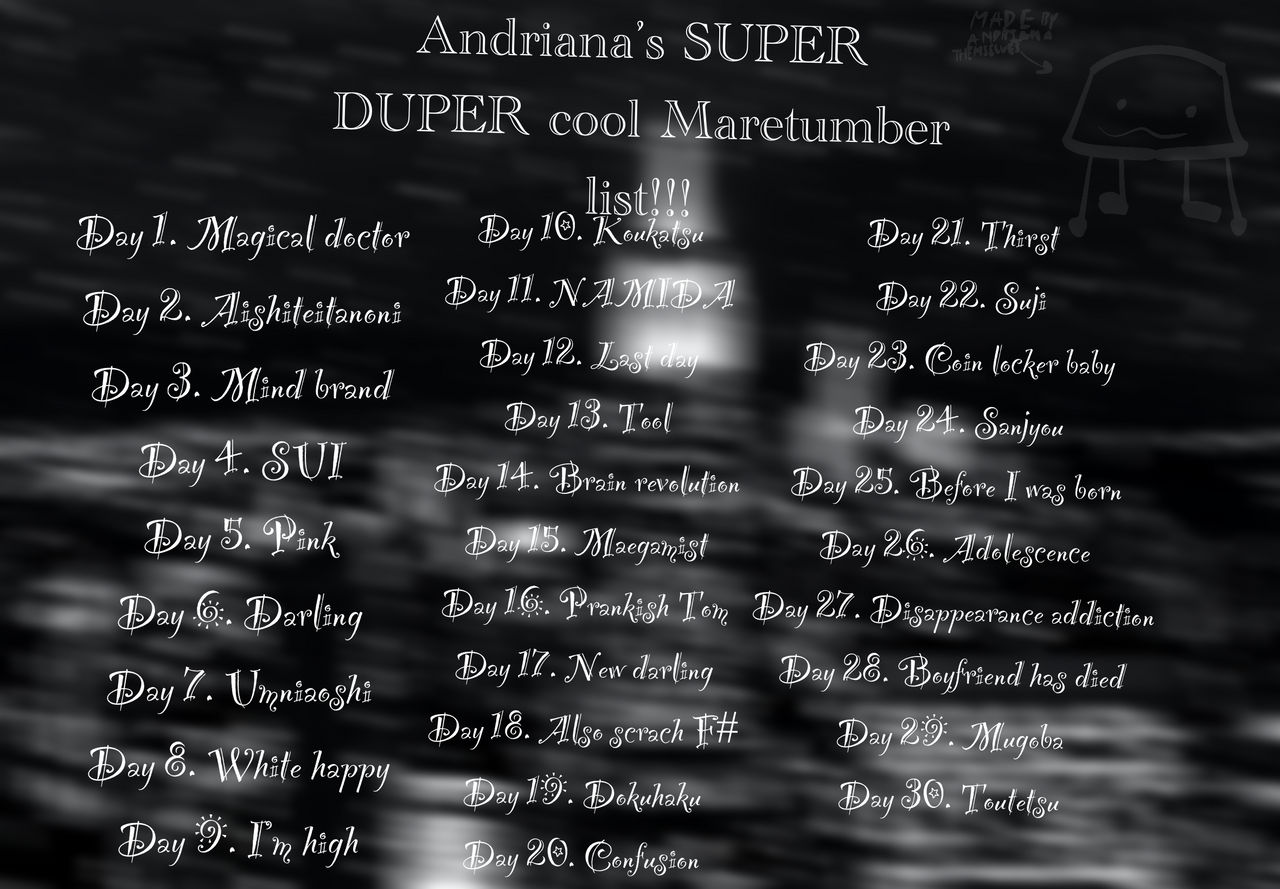 Andriana's SUPER
DUPER cool Maretumber
list!!!
MADE BY
ANDRIANA
THEMSELVES
Day 1. Magical doctor
Day 2. Aishiteitanoni
Day 3. Mind brand
Day 4. SUI
Day 5. Pink
Day 6. Darling
Day 7. Umniaoshi
Day 8. White happy
Day 9. I'm high
Day 10. Koukatsu
Day 11. NAMIDA
Day 12. Last day
Day 13. Tool
Day 14. Brain revolution
Day 15. Maegamist
Day 16. Prankish Tom
Day 17. New darling
Day 18. Also scrach F#
Day 19. Dokuhaku
Day 20. Confusion
Day 21. Thirst
Day 22. Suji
Day 23. Coin locker baby
Day 24. Sanjyou
Day 25. Before I was born
Day 26. Adolescence
Day 27. Disappearance addiction
Day 28. Boyfriend has died
Day 29. Mugoba
Day 30. Toutetsu